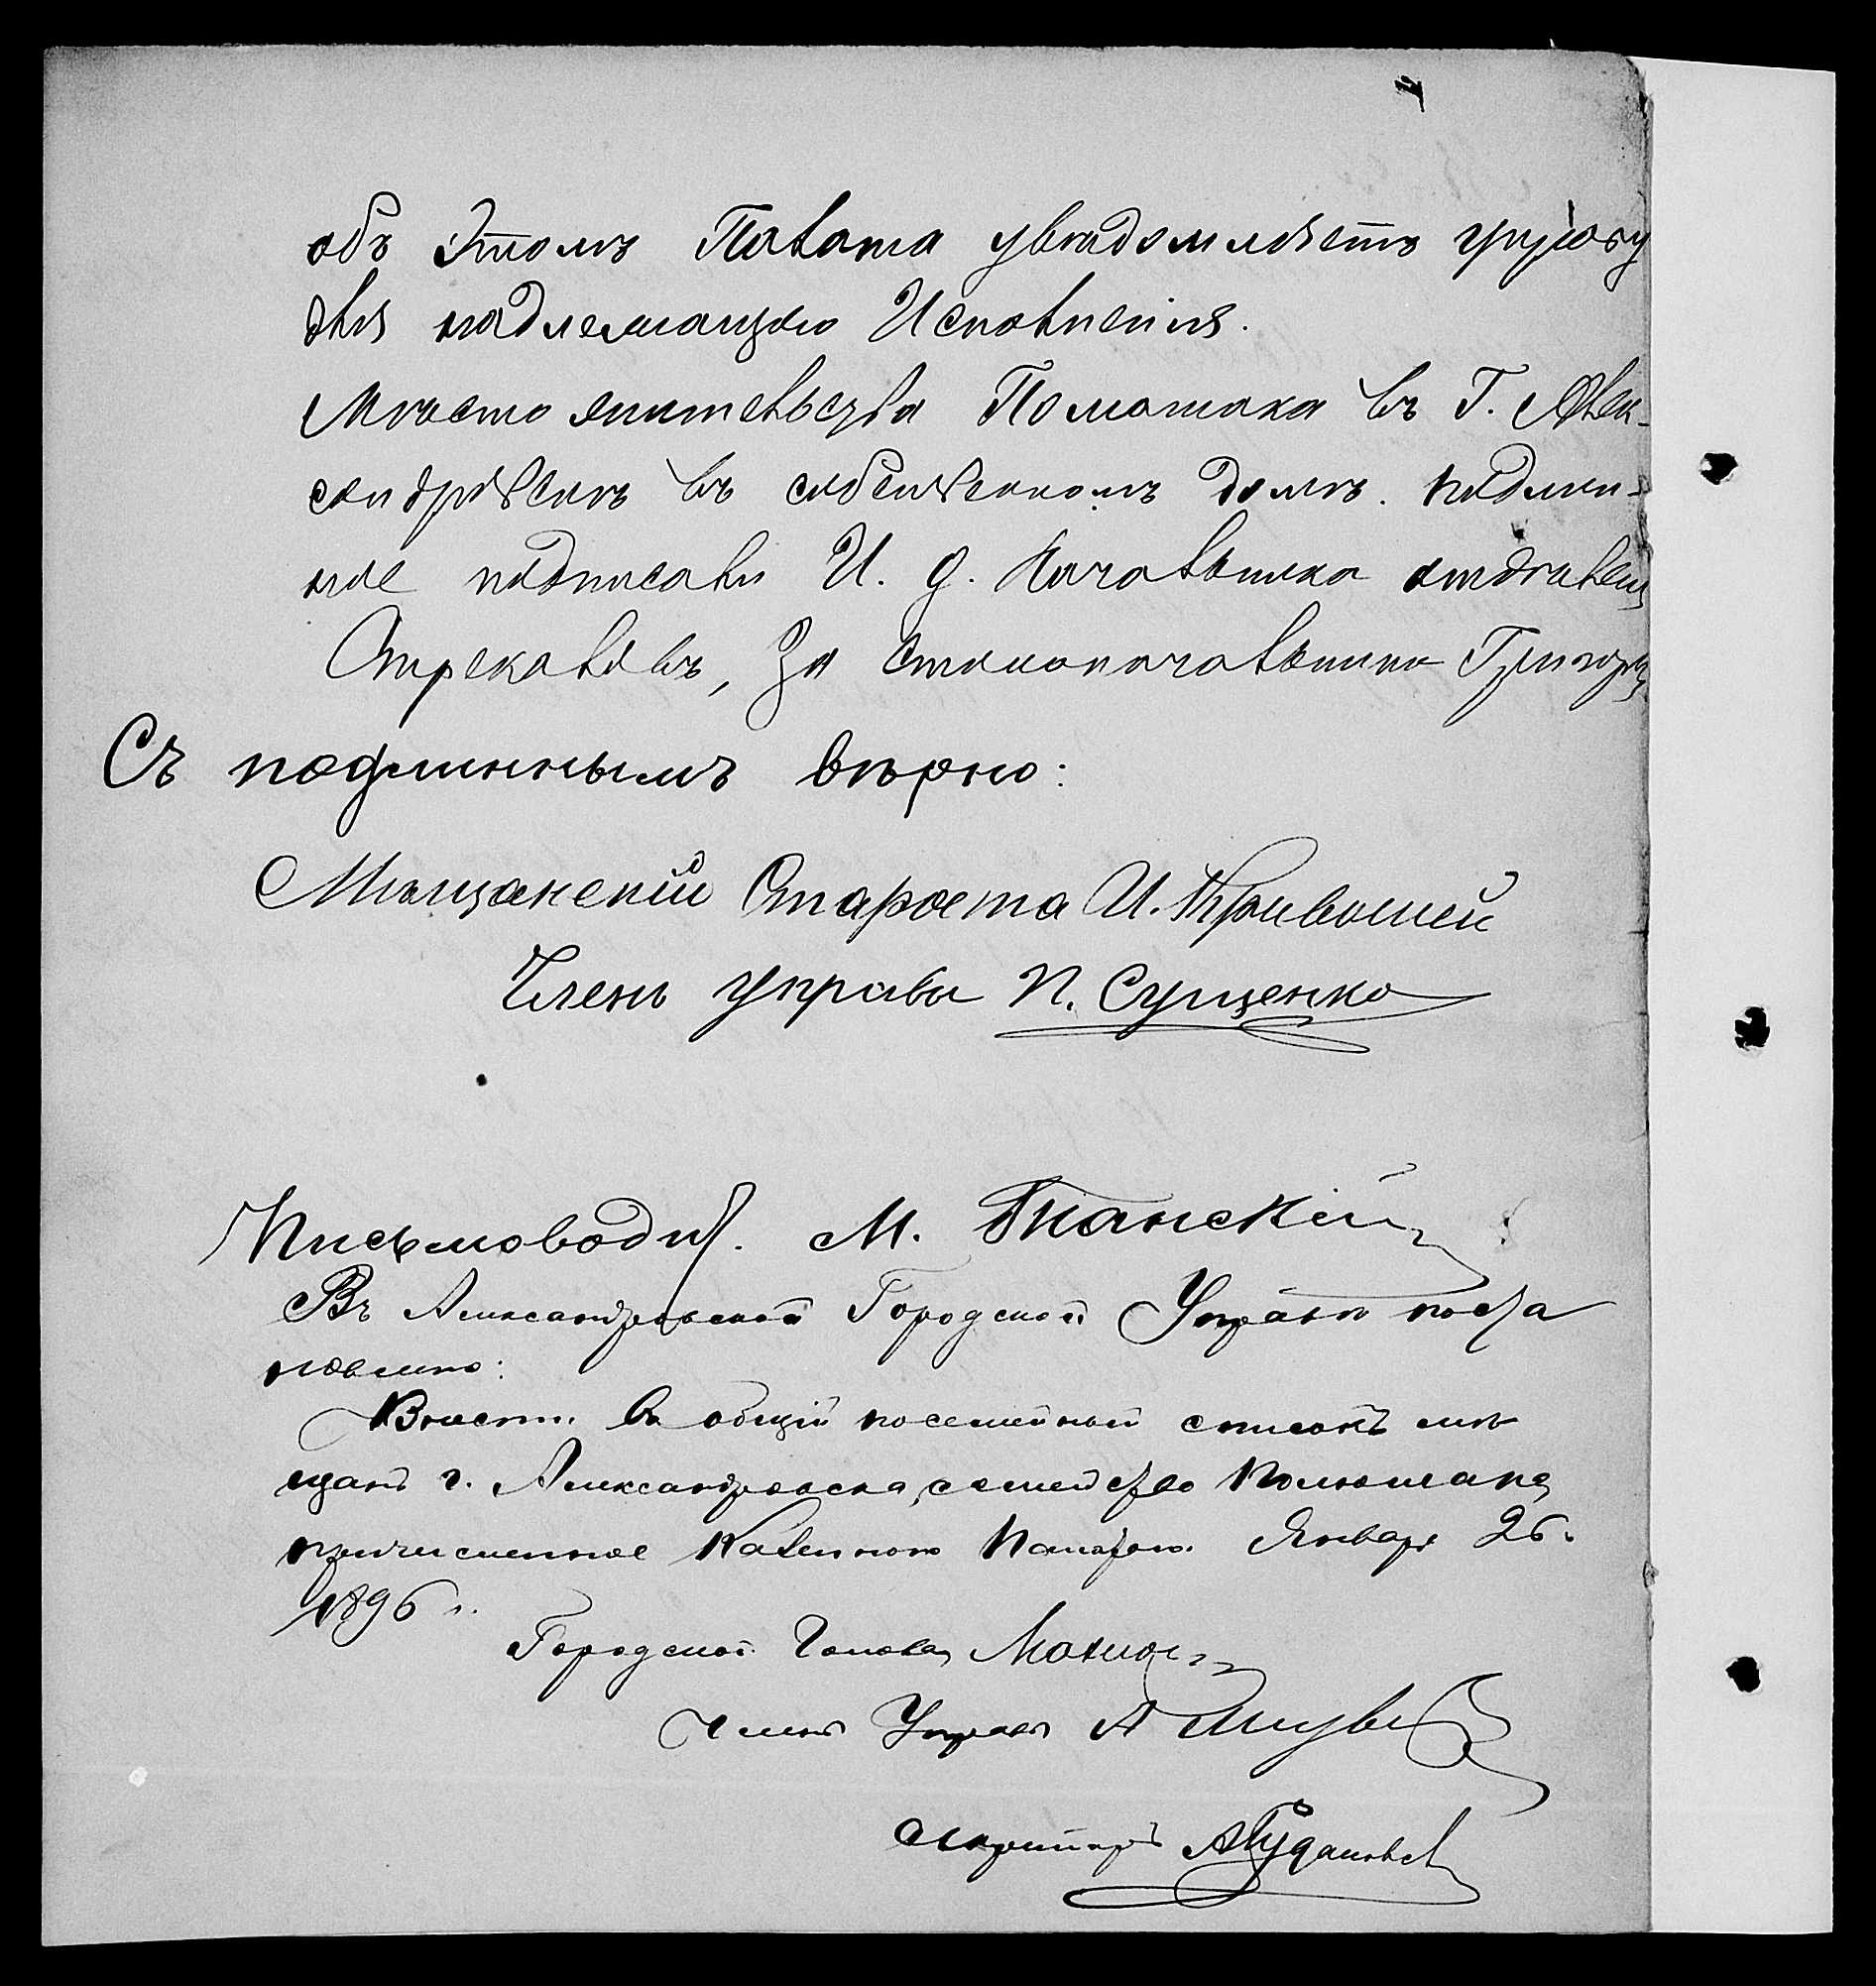 объ этомъ Палата увѣдомляетъ управу
для надлежащаго Исполненія.
Мѣсто жительства Полюшака въ Г. Алек-
сандровскѣ въ собственномъ домѣ. подлин-
ное подписали И. д. Начальника отделенія
Стрекаловъ, За столоначальника
Съ подлиннымъ вѣрно:
Мѣщанскій Староста И. Кривошей
Членъ управы П. Сущенко
Письмоводит. М.
Въ Александровской Городской Управѣ поста
новлено:
Внести въ общій посемейный списокъ мѣ
щанъ г. Александровска, семейство Полюшака
причисленное Казенною Палатою. Января 26.
1896 г.
Городской Голова
Членъ Управы А
Секретарь А